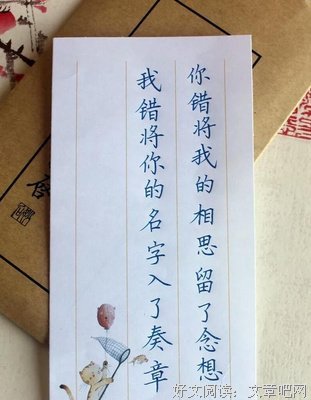 你错将我的相思留了念想
我错将你的名字入了奏章
好文阅读：文章吧网